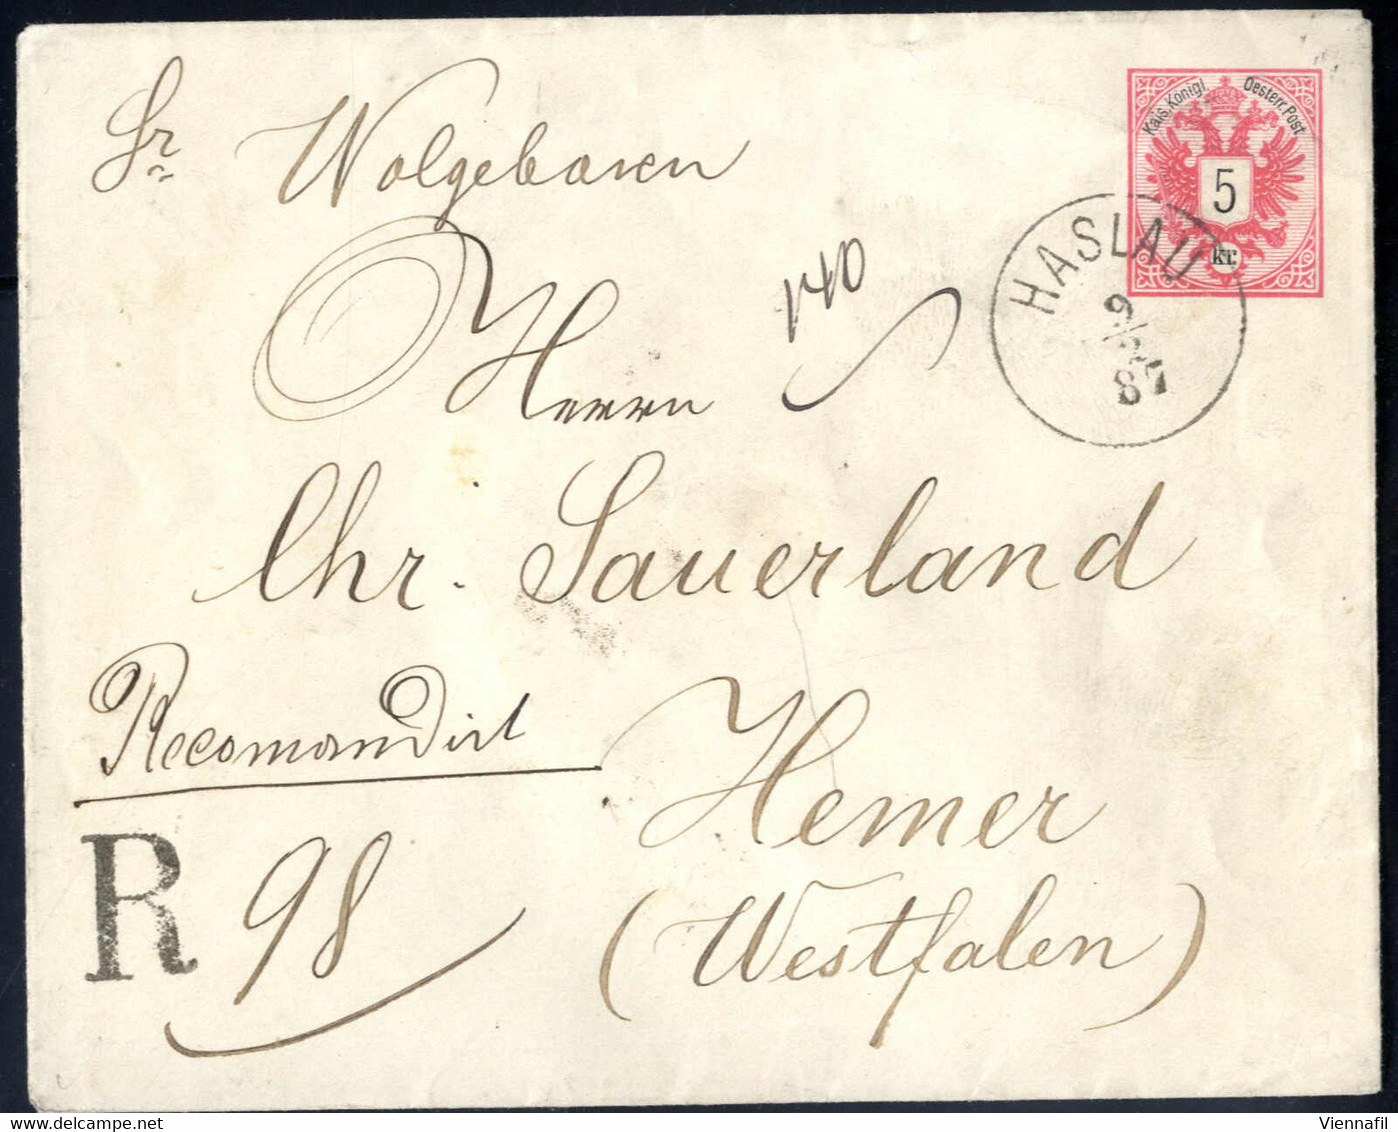 Kais. Königl. Oesterr. Post
5
kr.
HASLAU
9
87
Sr Wolgeboren
Herrn
140
Chr. Sauerland
Recomandirt
Hemer
R 98
(Westfalen)
Viennafil